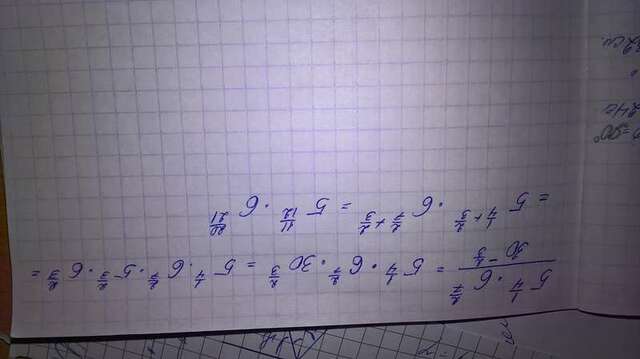 \frac{5^{\frac{1}{4}} \cdot 6^{\frac{2}{7}}}{30^{-\frac{2}{3}}} = 5^{\frac{1}{4}} \cdot 6^{\frac{2}{7}} \cdot 30^{\frac{2}{3}} = 5^{\frac{1}{4}} \cdot 6^{\frac{2}{7}} \cdot 5^{\frac{2}{3}} \cdot 6^{\frac{2}{3}} =
= 5^{\frac{1}{4}+\frac{2}{3}} \cdot 6^{\frac{2}{7}+\frac{2}{3}} = 5^{\frac{11}{12}} \cdot 6^{\frac{20}{21}}